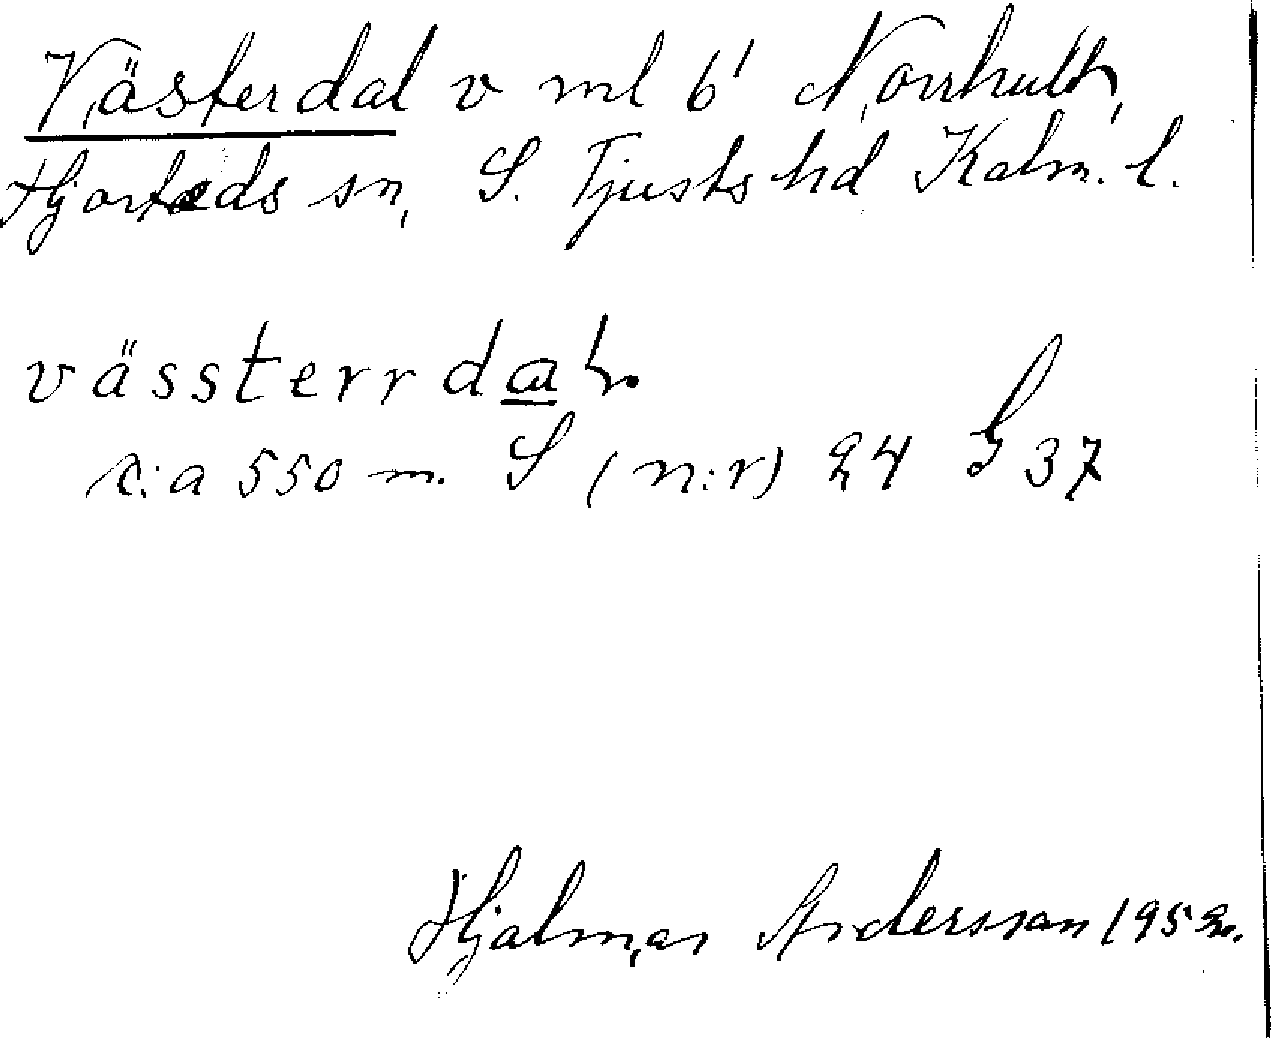 Västerdal v ml b' Norrhult,
Hjorteds sn, S. Tjusts hd Kalm. l.
vässterrdaL
c:a 550 m. S (n:r) 24 G 37
Hjalmar Andersson 1952.